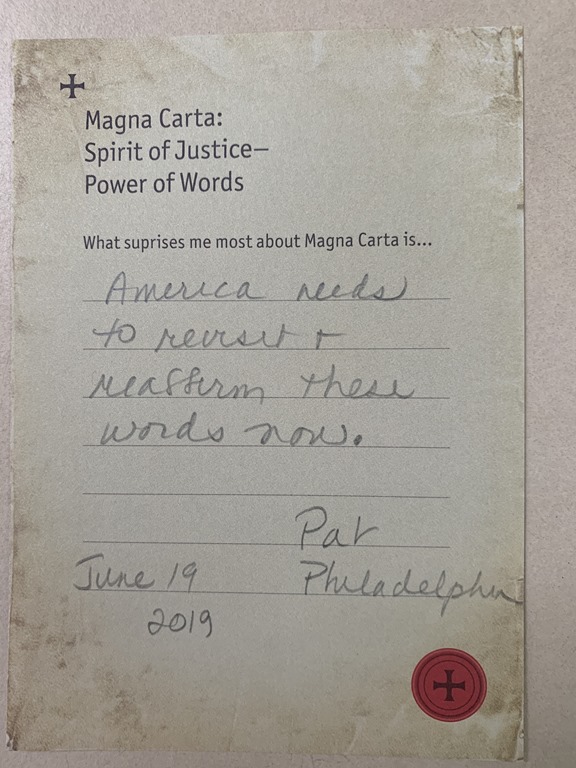 Magna Carta:
Spirit of Justice—
Power of Words
What suprises me most about Magna Carta is...
America needs
to revisit +
reaffirm these
words now.
Pat
June 19 Philadelphia
2019